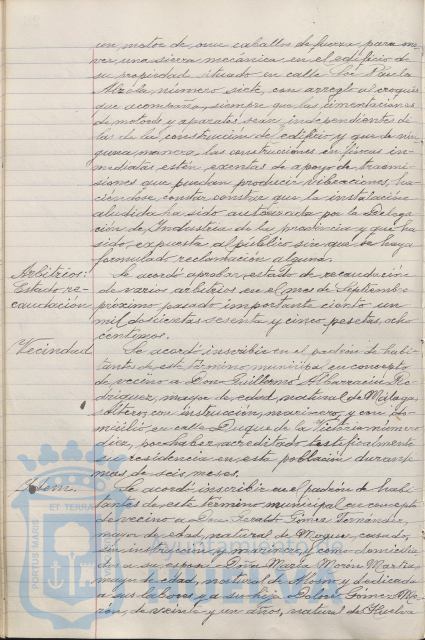 un motor de once caballos de fuerza para mo-
ver una sierra mecánica en el edificio de
su propiedad situado en calle Sor Paula
Alzola número siete, con arreglo al croquis
que acompaña, siempre que las cimentaciones
de motor de y aparatos sean independientes de
las de la construcción del edificio y que de nin-
guna manera, las construcciones en fincas in-
mediatas estén exentas de apoyo de transmi-
siones que puedan producir vibraciones, ha-
ciéndose constar que la instalación
aludida ha sido autorizada por la Delega-
ción de Industria de la provincia y que ha
sido expuesta al público sin que se haya
formulado reclamación alguna.
Arbitrios:
Estado re-
caudación
Se acordó aprobar estado de recaudación
de varios arbitrios en el mes de Septiembre
próximo pasado importante ciento un
mil doscientas sesenta y cinco pesetas, ocho
céntimos.
Vecindad
Se acordó inscribir en el padrón de habi-
tantes de este término municipal en concepto
de vecino a Don Guillermo Albarracín Ro-
dríguez, mayor de edad, natural de Málaga,
soltero, con instrucción, marinero, y con do-
micilio en calle Duque de la Victoria número
diez, por haber acreditado testificalmente
su residencia en esta población durante
mas de seis meses.
Idem.
Se acordó inscribir en el padrón de habi-
tantes de este término municipal en concepto
de vecino a Don Gómez Fernández,
mayor de edad, natural de Moguer, casado,
sin instrucción y marino, y como domicilia-
da a su esposa Doña María Morón Martín
mayor de edad, natural de y dedicada
a sus labores y a su hija Dolores Gómez Mo-
rón, de veinte y un años, natural de Huelva
PORTUS MARIS
ET TERRA